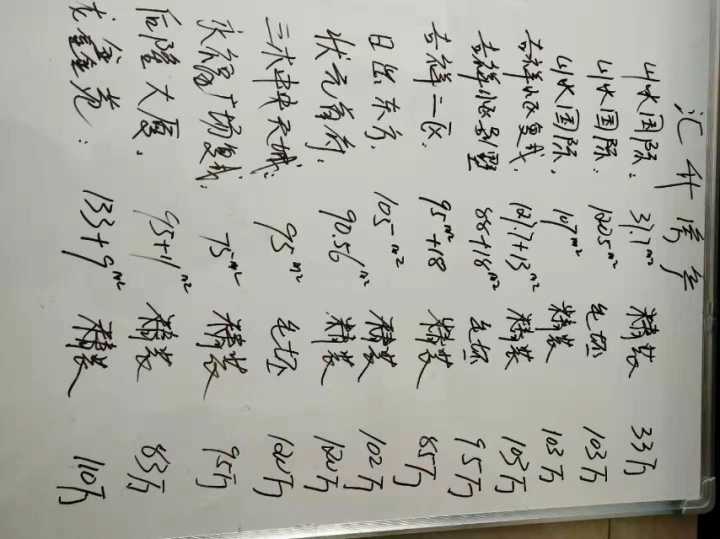 汇升房产
山水国际: 37.7m² 精装 33万
山水国际: 120.5m² 毛坯 103万
山水国际. 107m² 精装 103万
吉祥小区复式. 121.7+13m² 精装 105万
吉祥小区别墅 88+18m² 毛坯 95万
吉祥二区. 95m²+18 精装 85万
日出东方. 105m² 精装 102万
状元首府. 90.56m² 精装 120万
三木中央天城: 95m² 毛坯 120万
永福广场复式: 75m² 精装 95万
恒隆大厦. 95+11m² 精装 83万
龙鑫苑: 133+9m² 精装 110万